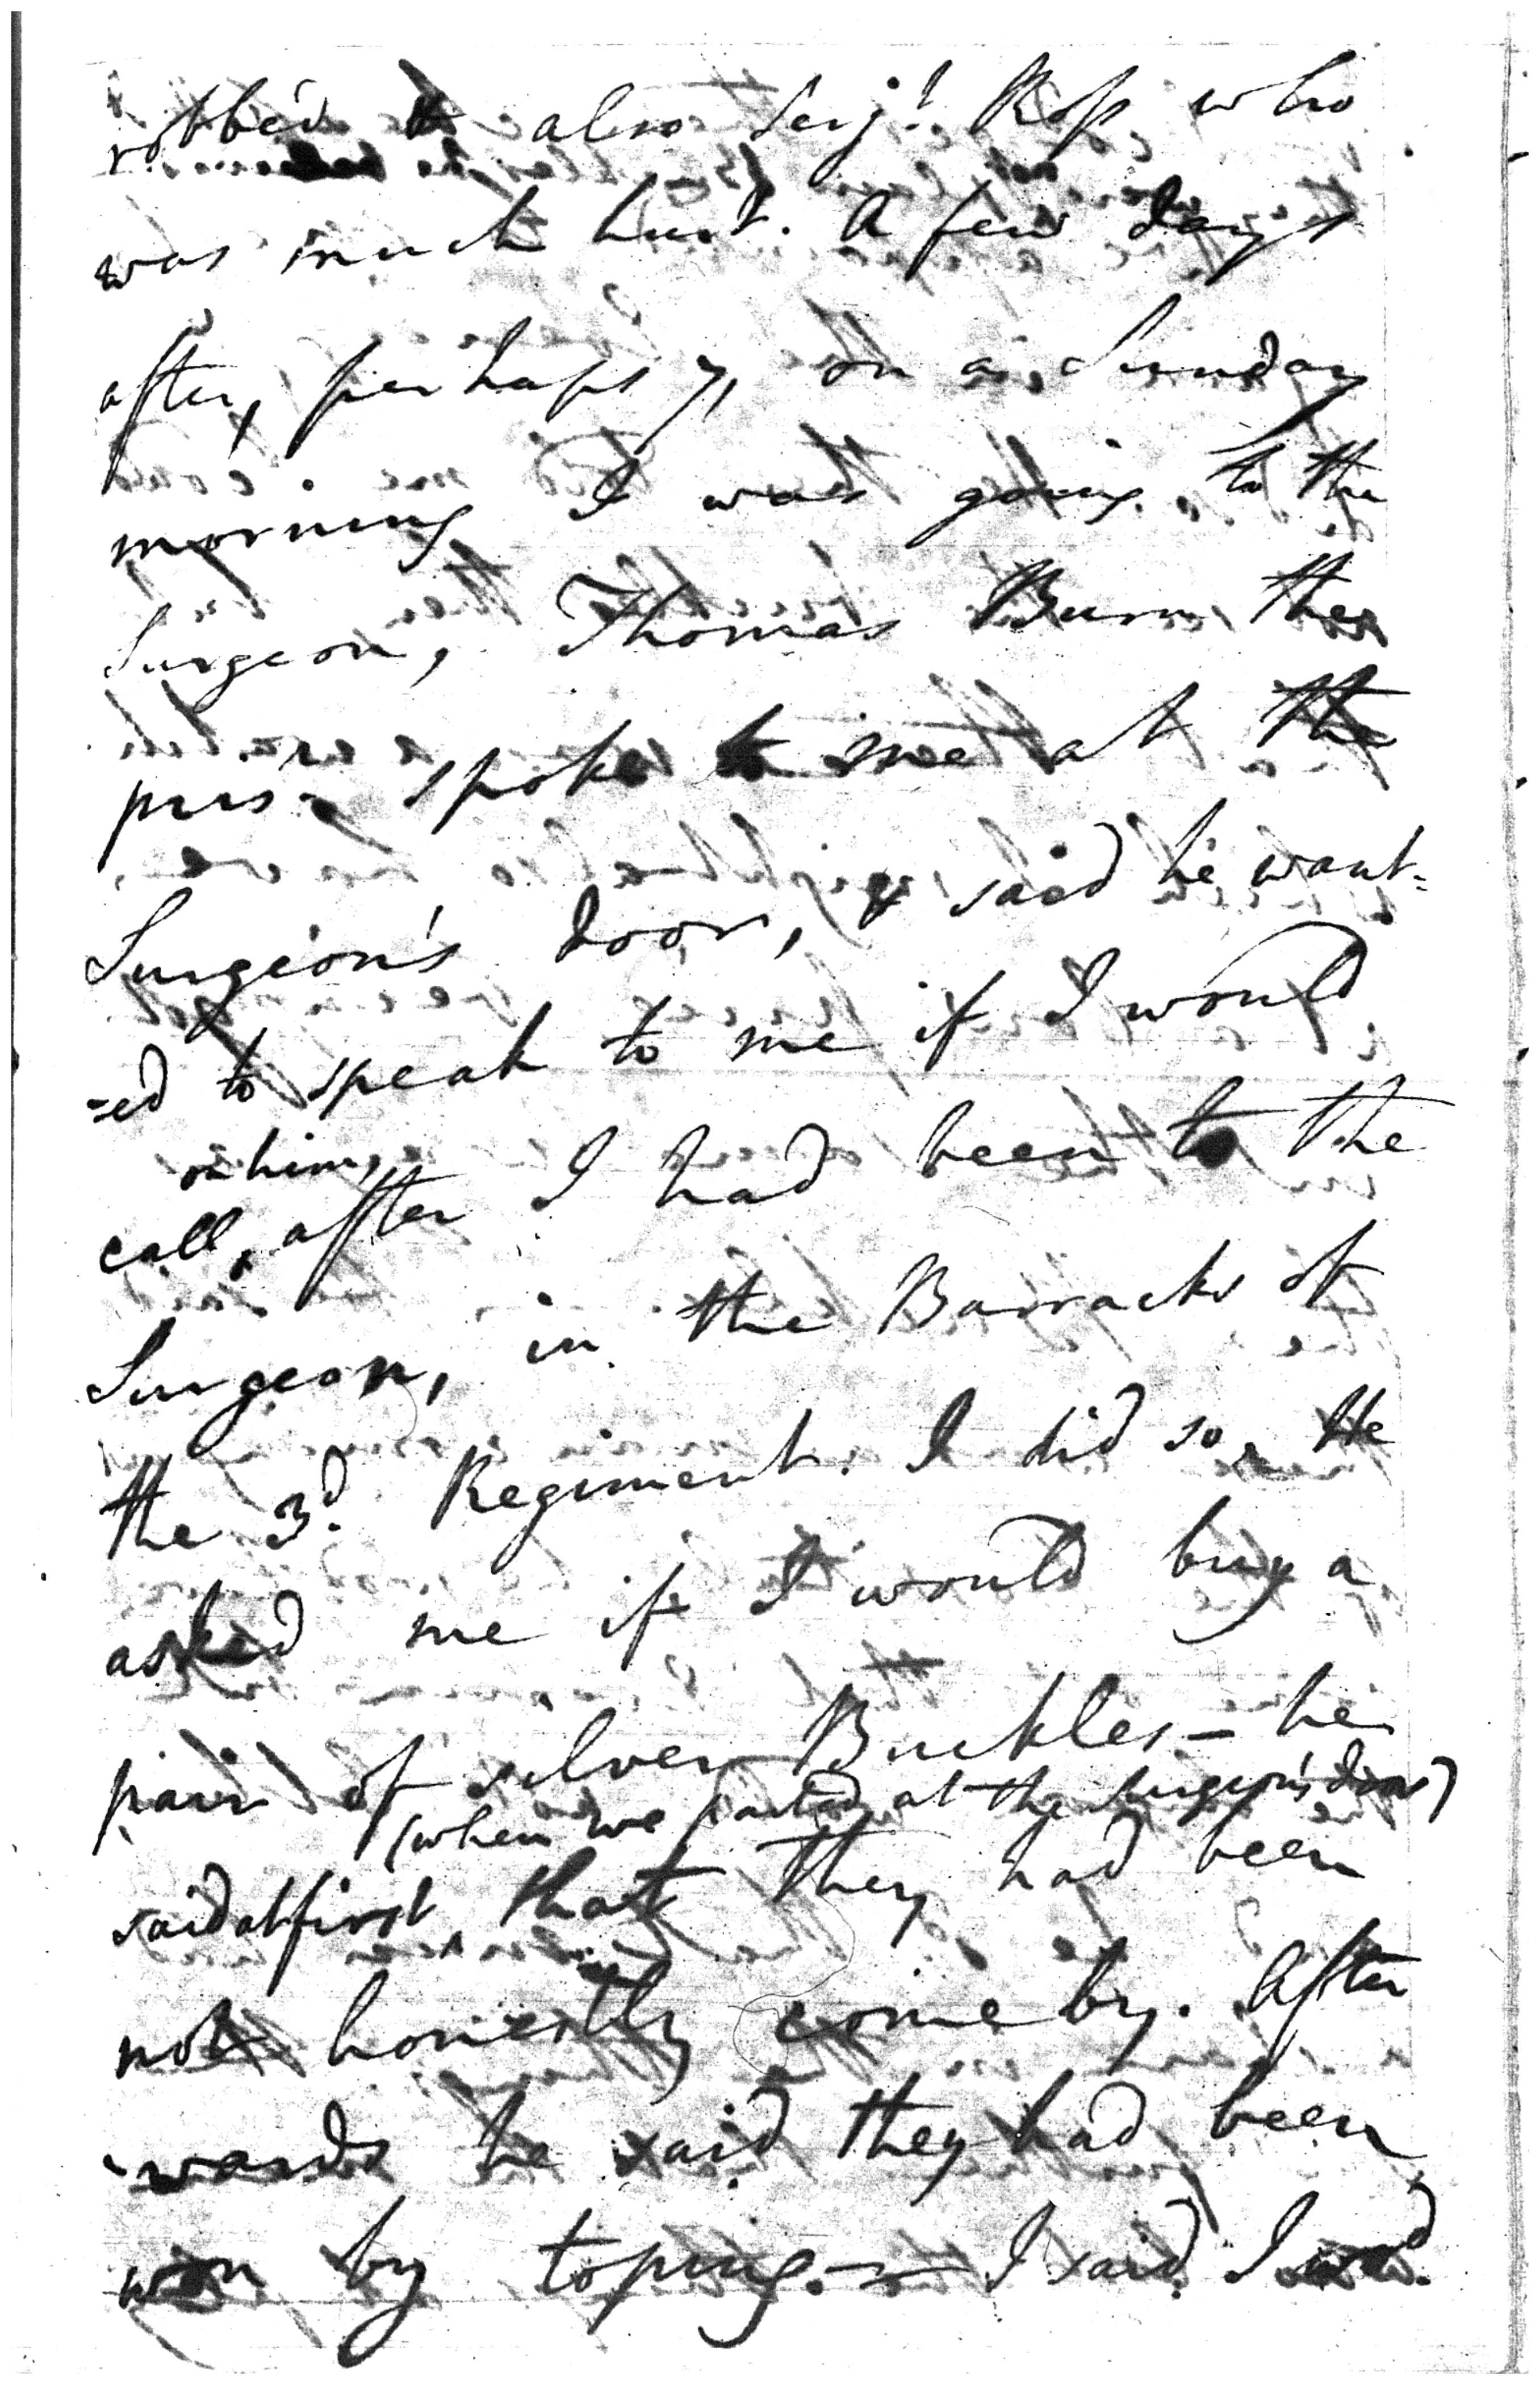 robbed & also Serjt. Ross who
was much hurt. A few days
after, perhaps 7, on a Sunday
morning I was going to the
Surgeon, Thomas Burn the
prisr. spoke to me at the
Surgeon's door, & said he want=
=ed to speak to me if I would
on him,
call, after I had been to the
Surgeon, in the Barracks of
the 3d. Regiment. I did so. He
asked me if I would buy a
pair of silver Buckles – he
(when we parted at the Surgeon's door)
said at first that they had been
not honestly come by. After
-wards he said they had been
won by toping. – I said I wod.